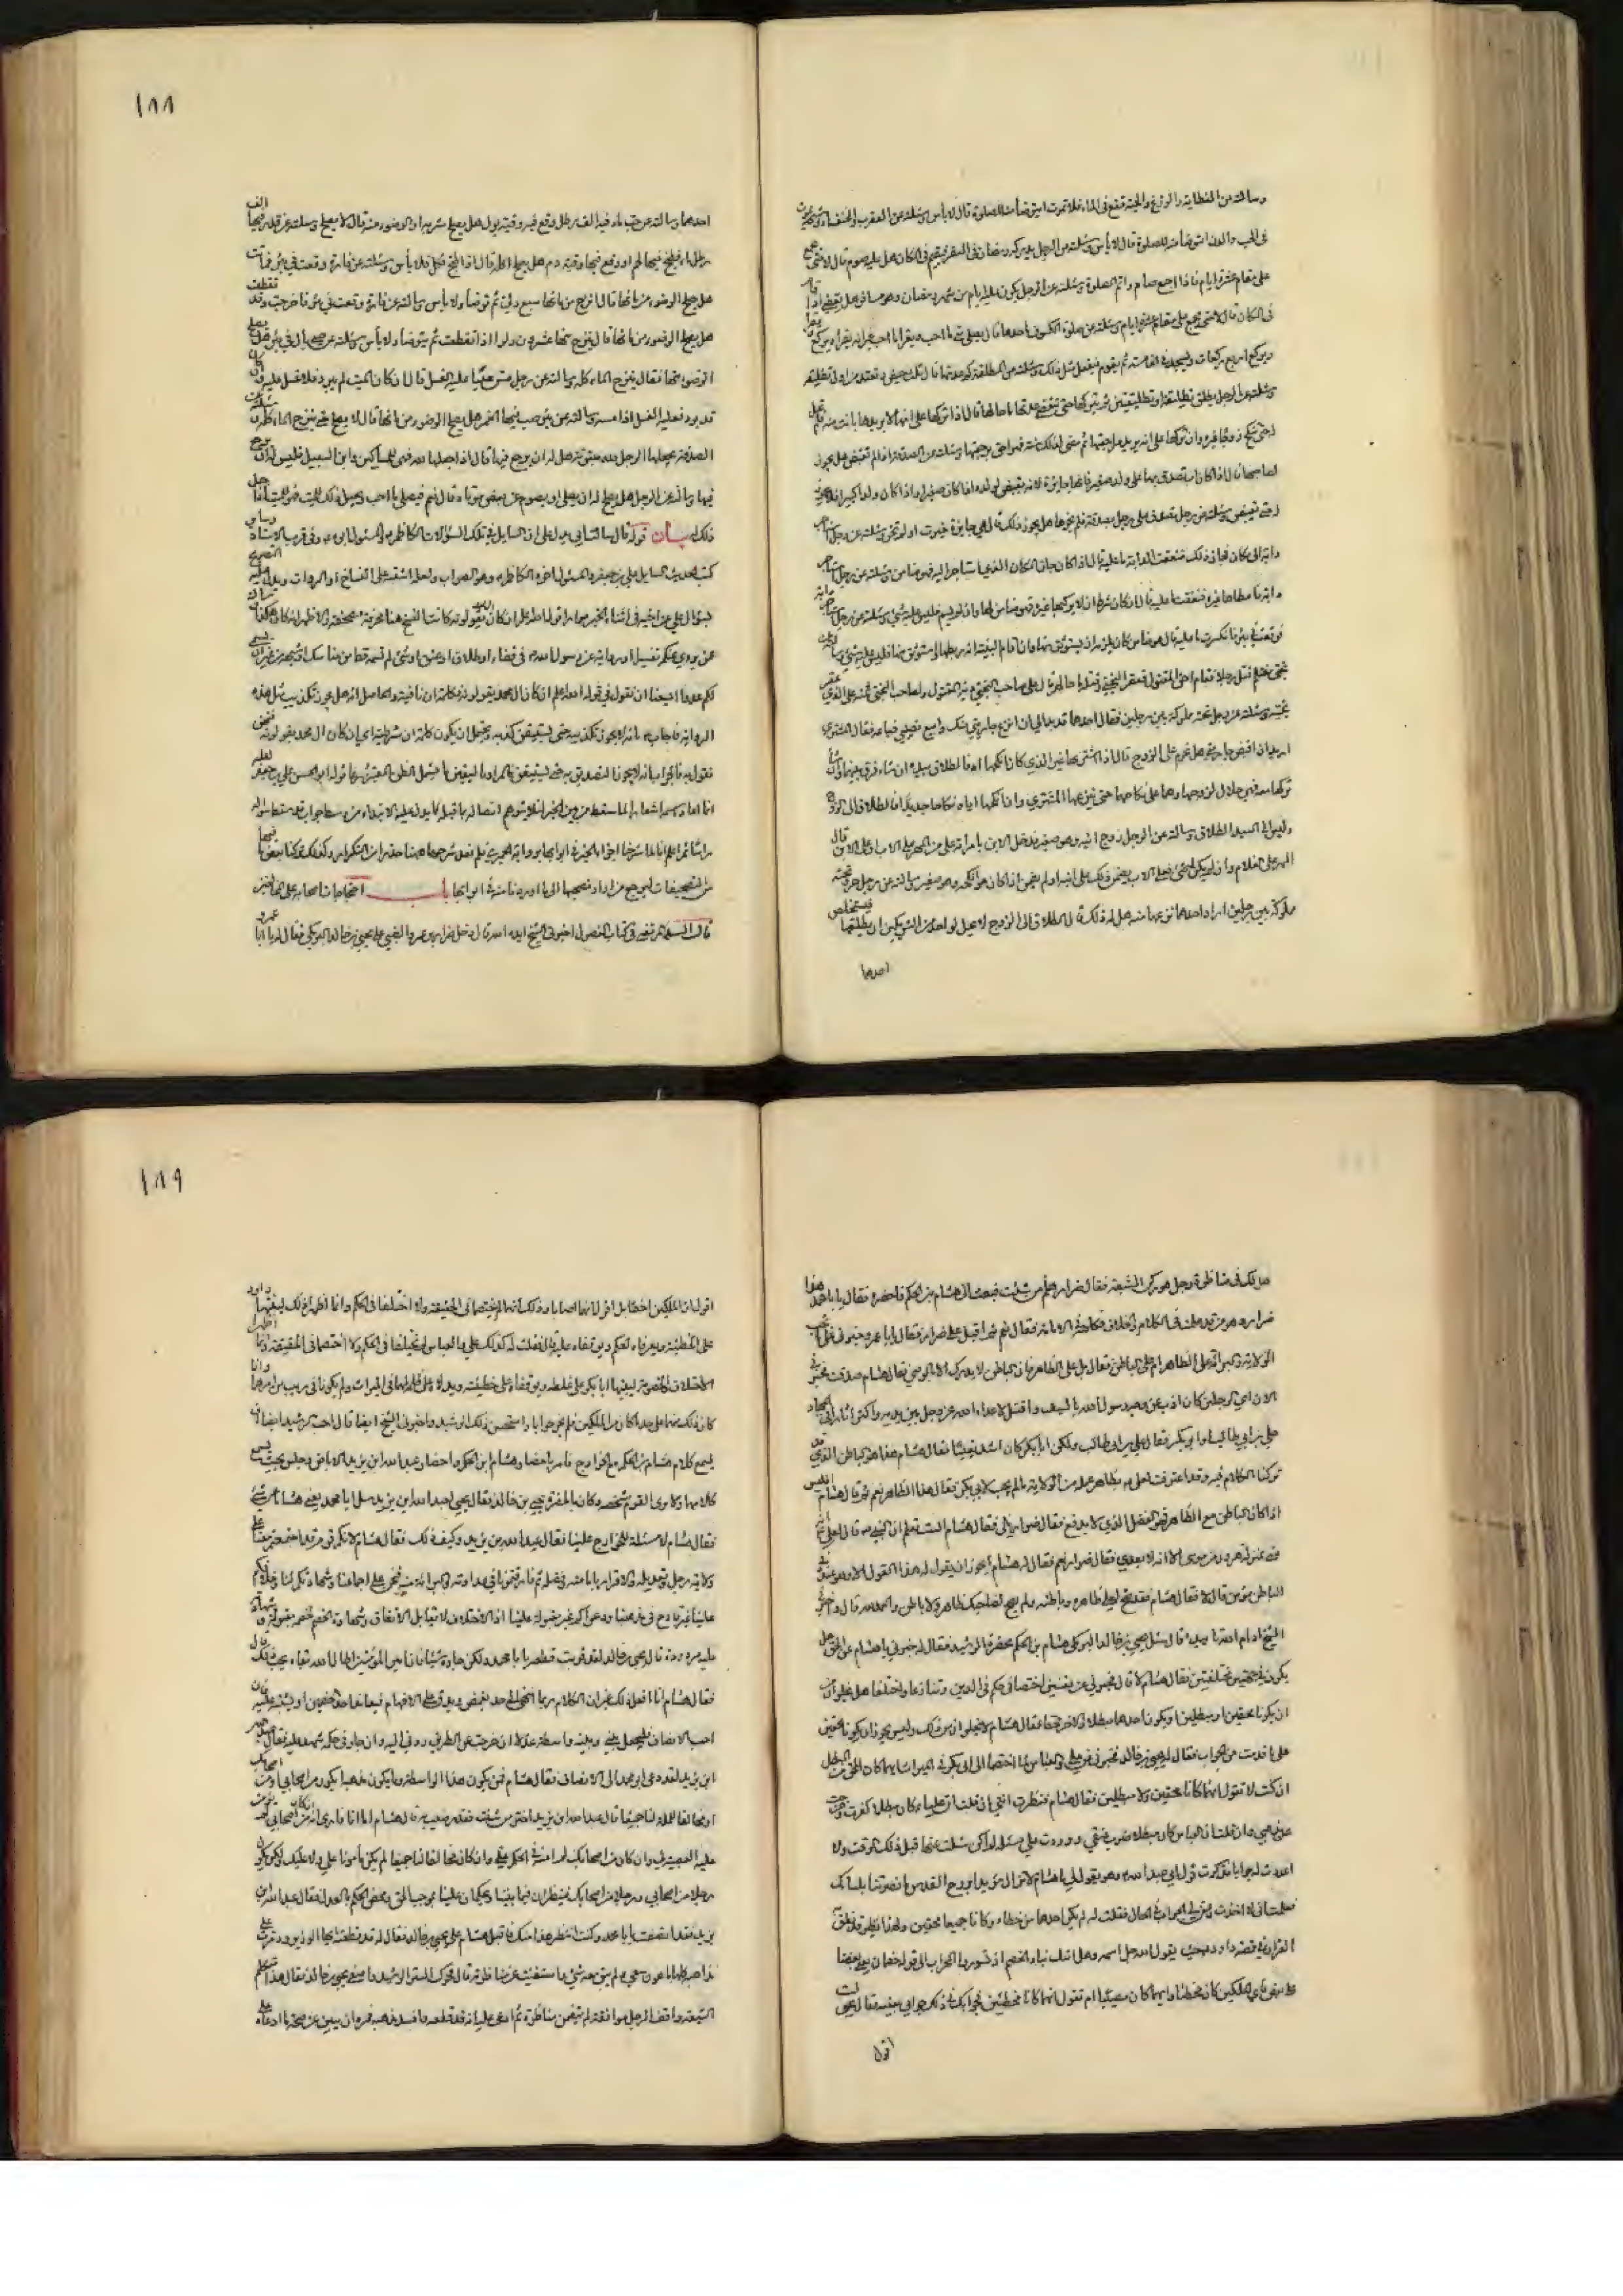 وسالته عن العظاية والوزغ والحية تقع في الماء فلا تموت ايتوضأ منه للصلوة قال لا باس وسئلته عن العقرب والخنفساء
في الجب والدن ايتوضأ منه للصلوة قال لا بأس وسئلته عن الرجل يدركه رمضان في السفر فيقيم في المكان هل عليه صوم قال لا حتى يجمع
على مقام عشرة ايام فاذا اجمع صام واتم الصلوة وسئلته عن الرجل يكون عليه ايام من شهر رمضان وهو مسافر هل يقضي اذا اقام
في المكان قال لا حتى يجمع على مقام عشرة ايام وسئلته عن صلوة الكسوف ما حدها قال يصلي متى ما احب ويقرأ ما احب غير انه يقرأ ويركع ويقرأ
ويركع اربع ركعات ويسجد في الخامسة ثم يقوم فيفعل مثل ذلك وسئلته عن المطلقة كم عدتها قال ثلث حيض وتعتد من اول تطليقة
وسئلته عن الرجل يطلق تطليقة او تطليقتين ثم يتركها حتى تنقضي عدتها ما حالها قال اذا تركها على انه لا يريدها بانت منه فلم تحل
له حتى تنكح زوجا غيره وان تركها على انه يريد مراجعتها ثم مضى لذلك سنة فهو احق برجعتها وسئلته عن الصدقة اذا لم تقبض هل يجوز
لصاحبها قال اذا كان اب تصدق بها على ولد صغير فانها جايزة لانه يقبض لولده اذا كان صغيرا واذا كان ولدا كبيرا فلا يجوز
له حتى يقبض وسئلته عن رجل تصدق على رجل بصدقة فلم يحزها هل يجوز ذلك قال هي جايزة حيزت او لم تحز وسئلته عن رجل استاجر
دابة الى مكان فجاز ذلك فنفقت الدابة ما عليه قال اذا كان جاز المكان الذي استاجر اليه فهو ضامن وسئلته عن رجل استاجر
دابة فاعطاها غيره فنفقت ما عليه قال ان كان شرط ان لا يركبها غيره فهو ضامن لها وان لم يسم فليس عليه شيء وسئلته عن رجل استاجر دابة
فوقعت في بئر فانكسرت ما عليه قال هو ضامن كان يلزمه ان يستوثق منها وان اقام البينة انه ربطها واستوثق منها فليس عليه شيء وسالته عن
بختي مغتلم قتل رجلا فقام اخو المقتول فعقر البختي وقتله ما حاله قال على صاحب البختي دية المقتول ولصاحب البختي ثمنه على الذي عقر
بختيه وسئلته عن رجل تحته مملوكة بين رجلين فقال احدهما قد بدا لي ان انزع جاريتي منك وابيع نصيبي فباعه فقال المشتري
اريد ان اقبض جاريتي هل تحرم على الزوج قال اذا اشتراها غير الذي كان انكحها اياه فالطلاق بيده ان شاء فرق بينهما وان شاء
تركها معه فهي حلال لزوجها وهما على نكاحهما حتى ينزعها المشتري وان انكحها اياه نكاحا جديدا فالطلاق الى الزوج
وليس الى السيد الطلاق وسالته عن الرجل زوج ابنه وهو صغير فدخل الابن بامرأته على من المهر على الاب او على الابن قال
المهر على الغلام وان لم يكن له شيء فعلى الاب يضمن ذلك على ابنه او لم يضمن اذا كان هو انكحه وهو صغير وسالته عن رجل حر تحته
مملوكة بين رجلين اراد احدهما نزعها منه هل له ذلك قال الطلاق الى الزوج لا يحل لواحد من الشريكين ان يطلقها فيستخلص
احدهما
١٨٨
احدهما وسالته عن حب ماء فيه الف رطل وقع فيه وقية بول هل يصلح شربه او الوضوء منه قال لا يصلح وسئلته عن قدر فيها الف
رطل ماء فطبخ فيها لحم او وقع فيها وقية دم هل يصلح اكله قال اذا طبخ فكل فلا بأس وسئلته عن فارة وقعت في بئر فماتت
هل يصلح الوضوء من مائها قال انزح من مائها سبع دلي ثم توضأ ولا بأس وسالته عن فارة وقعت في بئر فاخرجت وقد تقطعت
هل يصلح الوضوء من مائها قال ينزح منها عشرون دلوا اذا تقطعت ثم يتوضأ ولا بأس وسئلته عن صبي بال في بئر هل يصلح
الوضوء منها فقال ينزح الماء كله وسالته عن رجل مس ميتا عليه الغسل قال ان كان الميت لم يبرد فلا غسل عليه وان كان
قد برد فعليه الغسل اذا مسه وسالته عن بئر صب فيها الخمر هل يصلح الوضوء من مائها قال لا يصلح حتى ينزح الماء كله وسئلته عن
الصدقة يجعلها الرجل لله مبتوتة هل له ان يرجع فيها قال اذا جعلها لله فهي للمساكين وابن السبيل فليس له ان يرجع
فيها وسالته عن الرجل هل يصلح له ان يصلي او يصوم عن بعض موتاه قال نعم فيصلي ما احب ويجعل ذلك للميت فهو للميت اذا جعل
ذلك له بيان قوله قال سالت ابي يدل على ان السايل في تلك السؤالات الكاظم والمسئول ابوه وفي قرب الاسناد وساير
كتب الحديث السايل علي بن جعفر والمسئول اخوه الكاظم وهو الصواب ولعله اشتبه على النساخ او الرواة ويدل عليه التصريح
بسؤال علي عن اخيه في اثناء الخبر مرارا
عن يروي عنكم تفسيرا او رواية عن رسول الله في قضاء او طلاق او عتق او شيء لم نسمعه قط من مناسك او شبهه من غير ان يسمى
لكم عدوا ايسعنا ان نقول في قوله الله اعلم ان كان آل محمد يقولونه فكلمة ان نافية والحاصل انه هل يجوز تكذيب مثل هذه
الرواية فاجاب بانه لا يجوز تكذيبه حتى يستيقن كذبه ويحتمل ان يكون كلمة ان شرطية اي ان كان آل محمد يقولونه فنحن
نقول به فالجواب انه لا يجوز التصديق به حتى يستيقن والمراد باليقين ما يشمل الظن المعتبر شرعا قوله ابو الحسن علي بن جعفر لعله
انما اعاد اسمه اشعارا بما سقط من بين الخبر لئلا يتوهم اتصاله بما قبله كما يدل عليه الابتداء من وسط جواب قد سقط سؤاله
راسا ثم اعلم انا انما شرحنا اجزاء الخبر في ابوابها برواية الحميري فلم نعد شرحها ههنا حذرا من التكرار وكذلك تركنا بعض ما فيها
من التصحيفات ليرجع من اراد تصحيحها الى ما اوردنا منه في ابوابها باب احتجاجات اصحابه على المخالفين
قال السيد المرتضى في كتاب الفصول اخبرني الشيخ ايده الله قال دخل ضرار بن عمرو الضبي على يحيى بن خالد البرمكي فقال له يا ابا عمرو
هل لك في مناظرة رجل هو ركن الشيعة فقال ضرار هلم من شئت فبعث الى هشام بن الحكم فاحضره فقال يا با محمد هذا
ضرار وهو من قد علمت في الكلام والخلاف لك فكلمه في الامامة فقال نعم ثم اقبل على ضرار فقال يا ابا عمرو خبرني على ما تجب
الولاية والبراءة على الظاهر ام على الباطن فقال بل على الظاهر فان الباطن لا يدرك الا بالوحي فقال هشام صدقت فخبرني
الآن اي الرجلين كان اذب عن وجه رسول الله بالسيف واقتل لاعداء الله عز وجل بين يديه واكثر آثارا في الجهاد
علي بن ابي طالب او ابو بكر فقال علي بن ابي طالب ولكن ابا بكر كان اشد يقينا فقال هشام هذا هو الباطن الذي قد
تركنا الكلام فيه وقد اعترفت لعلي بظاهر عمله من الولاية ما لم يجب لابي بكر فقال هذا الظاهر نعم ثم قال هشام افليس
اذا كان الباطن مع الظاهر فهو الفضل الذي لا يدفع فقال ضرار بلى فقال هشام الست تعلم ان النبي قال لعلي انت
مني بمنزلة هرون من موسى الا انه لا نبي بعدي فقال ضرار نعم فقال له هشام أيجوز ان يقول له هذا القول الا وهو عنده في
الباطن مؤمن قال لا فقال هشام فقد صح لعلي ظاهره وباطنه ولم يصح لصاحبك ظاهر ولا باطن والحمد لله قال واخبرني
الشيخ ادام الله تاييده قال سئل يحيى بن خالد البرمكي هشام بن الحكم بحضرة الرشيد فقال له خبرني يا هشام عن الحق هل
يكون في جهتين مختلفتين فقال هشام لا قال فخبرني عن نفسين اختصما في حكم في الدين وتنازعا واختلفا هل يخلوان من
ان يكونا محقين او مبطلين او يكون احدهما مبطلا والآخر محقا فقال هشام لا يخلوان من ذلك وليس يجوز ان يكونا محقين
على ما قدمت من الجواب فقال له يحيى بن خالد فخبرني عن علي والعباس لما اختصما الى ابي بكر في الميراث ايهما كان المحق من المبطل
اذ كنت لا تقول انهما كانا محقين ولا مبطلين فقال هشام فنظرت اذا انني ان قلت ان عليا كان مبطلا كفرت وخرجت
عن مذهبي وان قلت ان العباس كان مبطلا ضرب عنقي ووردت علي مسئلة لم اكن سئلت عنها قبل ذلك الوقت ولا
اعددت لها جوابا فذكرت قول ابي عبد الله وهو يقول لي يا هشام لا تزال مؤيدا بروح القدس ما نصرتنا بلسانك
فعلمت اني لا اخذل وعن لي الجواب في الحال فقلت له لم يكن لاحدهما خطاء وكانا جميعا محقين ولهذا نظير قد نطق به
القرآن في قصة داود حيث يقول الله جل اسمه وهل اتيك نباء الخصم اذ تسوروا المحراب الى قوله خصمان بغى بعضنا
على بعض فاي الملكين كان مخطئا وايهما كان مصيبا ام تقول انهما كانا مخطئين فجوابك في ذلك جوابي بعينه فقال يحيى لست
اقول
١٨٩
اقول ان الملكين اخطآ بل اقول انهما اصابا وذلك انهما لم يختصما في الحقيقة ولا اختلفا في الحكم وانما اظهرا ذلك لينبها داود
على الخطيئة ويعرفاه الحكم ويوقفاه عليه قال فقلت له كذلك علي والعباس لم يختلفا في الحكم ولا اختصما في الحقيقة وانما اظهرا
الاختلاف والخصومة لينبها ابا بكر على غلطه ويوقفاه على خطيئته ويدلاه على ظلمه لهما في الميراث ولم يكونا في ريب من امرهما وانما
كان ذلك منهما على حد ما كان من الملكين فلم يحر جوابا واستحسن ذلك الرشيد واخبرني الشيخ ايضا قال احب الرشيد ان
يسمع كلام هشام بن الحكم مع الخوارج فامر باحضاره واحضار عبد الله بن يزيد الاباضي وجلس بحيث يسمع
كلامهما ولا يرى القوم شخصه وكان بالحضرة يحيى بن خالد فقال يحيى لعبد الله بن يزيد سل ابا محمد يعني هشاما عن شيء
فقال هشام لا مسئلة للخوارج علينا فقال عبد الله بن يزيد وكيف ذلك فقال هشام لانكم قوم قد اجتمعتم معنا على
ولاية رجل وتعديله والاقرار بامامته وفضله ثم فارقتمونا في عداوته والبراءة منه فنحن على اجماعنا وشهادتكم لنا وخلافكم
علينا غير قادح في مذهبنا ودعواكم غير مقبولة علينا اذ الاختلاف لا يقابل الاتفاق وشهادة الخصم لخصمه مقبولة وشهادته
عليه مردودة قال يحيى بن خالد لقد قربت قطعه يا با محمد ولكن جاره شيئا فان امير المؤمنين اطال الله بقاءه يحب ذلك قال
فقال هشام انا افعل ذلك غير ان الكلام ربما انتهى الى حد يغمض ويدق على الافهام فيعاند احد الخصمين او يشتبه عليه فان
احب الانصاف فليجعل بيني وبينه واسطة عدلا ان خرجت عن الطريق ردني اليه وان جار في حكمه شهد عليه فقال عبد الله
ابن يزيد لقد دعى ابو محمد الى الانصاف فقال هشام فمن يكون هذا الواسطة وما يكون مذهبه ايكون من اصحابي او من اصحابك
او مخالفا للملة لنا جميعا قال عبد الله بن يزيد اختر من شئت فقد رضيت به قال هشام اما انا فارى انه ان كان من اصحابي لم يؤمن
عليه العصبية لي وان كان من اصحابك لم آمنه في الحكم علي وان كان مخالفا لنا جميعا لم يكن مأمونا علي ولا عليك ولكن يكون
رجلا من اصحابي ورجلا من اصحابك فينظران فيما بيننا ويحكمان علينا بموجب الحق ومحض الحكم بالعدل فقال عبد الله بن
يزيد فقد انصفت يا با محمد وكنت انتظر هذا منك فاقبل هشام على يحيى بن خالد فقال له قد قطعته ايها الوزير ودمرت على
مذاهبه كلها باهون سعي ولم يبق معه شيء واستغنيت عن مناظرته قال فحرك الستر الرشيد واصغى يحيى بن خالد فقال هذا متكلم
الشيعة واقف الرجل موافقة لم يتضمن مناظرة ثم ادعى عليه انه قد قطعه وافسد عليه مذهبه فمره ان يبين عن صحة ما ادعاه على